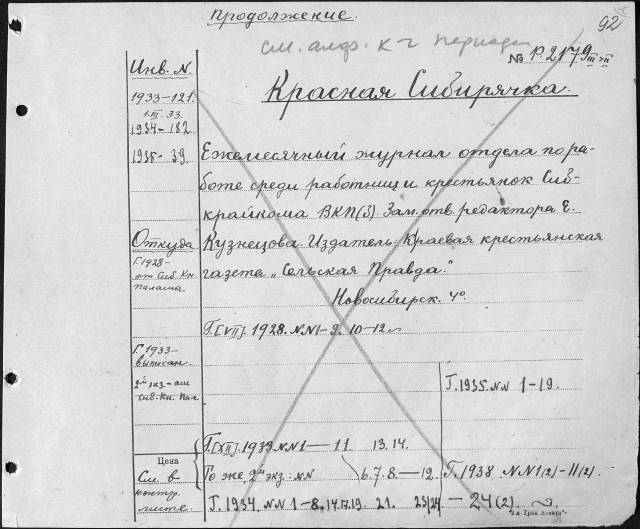 Продолжение.
92
см. алф. к-г период.
№ Р 2179 III-VII
Инв. N.
Красная Сибирячка.
1933-121.
1.III.33.
1934-182.
1935-39.
Ежемесячный журнал отдела по ра-
боте среди работниц и крестьянок Сиб-
крайкома ВКП(б) Зам. отв. редактора Е.
Откуда
Кузнецова. Издатель Краевая крестьянская
Г. 1928-
от Сиб. Кн.
палата
газета „Сельская Правда."
Новосибирск. 4°
Г. [VII]. 1928. NN 1-9. 10-12
Г. 1933-
выписан.
2й экз.-
Сиб. Кн. Пал.
Г. 1935. NN 1-19.
Г. [XII]. 1933. NN 1-11. 13. 14.
Цена
См. в
контр.
листе.
То же 2й экз.: NN 6. 7. 8.-12.
Г. 1938 NN 1(2)-11(2).
Г. 1934. NN 1-8. 14. 17. 19 21. 23/24 - 24(2).